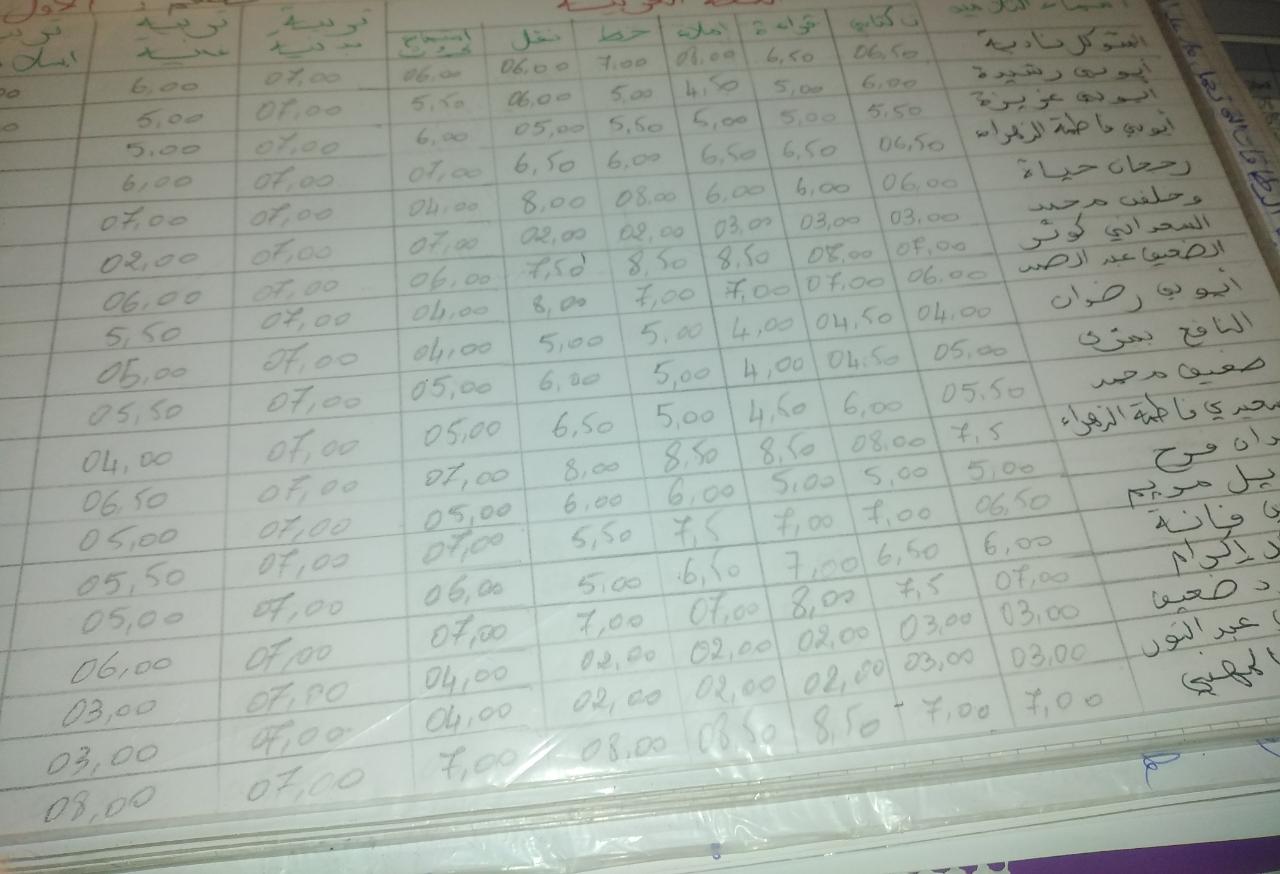 كتابي قراءة املاء خط نقل تربية بدنية تربية فنية
المتوكل نادية 06,50 6,50 08,00 7,00 06,00 06,00 07,00 6,00
أيوبي رشيدة 6,00 5,00 4,50 5,00 06,00 5,50 07,00 5,00
ايوبي عزيزة 5,50 5,00 5,00 5,50 05,00 6,00 07,00 5,00
أيوبي فاطمة الزهراء 06,50 6,50 6,50 6,00 6,50 07,00 07,00 6,00
حياة 06,00 6,00 6,00 08,00 8,00 04,00 07,00 07,00
محمد 03,00 03,00 03,00 02,00 02,00 07,00 07,00 02,00
السعداني كوثر 07,00 08,00 8,50 8,50 7,50 06,00 07,00 06,00
الضعيف عبد الصمد 06,00 07,00 7,00 7,00 8,00 04,00 07,00 5,50
أيوبي رضوان 04,00 04,50 4,00 5,00 5,00 04,00 07,00 05,00
النافع بشرى 05,00 04,50 4,00 5,00 6,00 05,00 07,00 05,50
ضعيف محمد 05,50 6,00 4,50 5,00 6,50 05,00 07,00 04,00
فاطمة الزهراء 7,5 08,00 8,50 8,50 8,00 07,00 07,00 06,50
فرح 5,00 5,00 5,00 6,00 6,00 05,00 07,00 05,00
مريم 06,50 7,00 7,00 7,5 5,50 07,00 07,00 05,50
6,00 6,50 7,00 6,50 5,00 06,00 07,00 05,00
إكرام 07,00 7,5 8,00 07,00 7,00 07,00 07,00 06,00
ضعيف 03,00 03,00 02,00 02,00 02,00 04,00 07,00 03,00
عبد النور 03,00 03,00 02,00 02,00 02,00 04,00 07,00 03,00
7,00 7,00 8,50 08,50 08,00 7,00 07,00 08,00